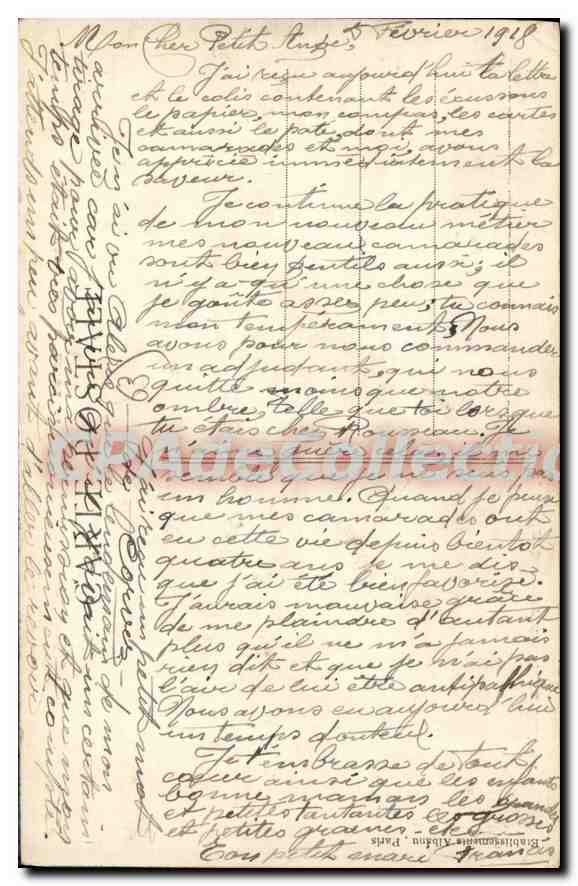 5 Février 1918
Mon Cher Petit Ange,
J'ai reçu aujourd'hui ta lettre
et le colis contenant les écussons
le papier, mon compas, les cartes
et aussi le pâté, dont mes
camarades et moi, avons
apprécié immédiatement la
saveur.
Je continue la pratique
de mon nouveau métier
mes nouveaux camarades
sont bien gentils aussi; il
n'y a qu'une chose que
je goûte assez peu; tu connais
mon tempérament, Nous
avons pour nous commander
un adjudant, qui nous
quitte moins que notre
ombre, telle que toi lorsque
tu étais chez Rousseau. Je
un homme. Quand je pense
que mes camarades ont
eu cette vie depuis bientôt
quatre ans je me dis
que j'ai été bien favorisé.
J'aurais mauvaise grâce
de me plaindre d'autant
plus qu'il ne m'a jamais
rien dit et que je n'ai pas
l'air de lui être antipathique
Nous avons eu aujourd'hui
un temps douteux.
Je t'embrasse de tout
cœur ainsi que les enfants
bonne maman les grandes
et petites tantantes les grosses
et petites graines - etc
Ton petit mari Francis
J'ai reçu un petit mot
de
J'en ai vu
que le lendemain de mon
arrivée car
un certain
tirage pour
permission et que mon
temps était
compté.
J'attends un peu avant d'aller le revoir
Etablissements Albanu, Paris
CPAdeCollection